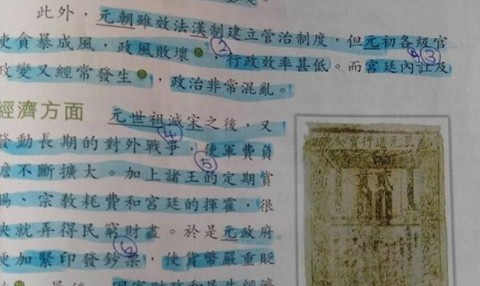 此外，元朝雖效法漢制建立管治制度，但元初各級官
使貪暴成風，政風敗壞❶，行政效率甚低。而宮廷內訌及
政變又經常發生❶，政治非常混亂。
經濟方面
元世祖滅宋之後，又
發動長期的對外戰爭，使軍費負
擔不斷擴大。加上諸王的定期賞
賜、宗教耗費和宮廷的揮霍，很
快就弄得民窮財盡。於是元政府
更加緊印發鈔票，使貨幣嚴重貶
②
③
④
⑤
⑥
貳